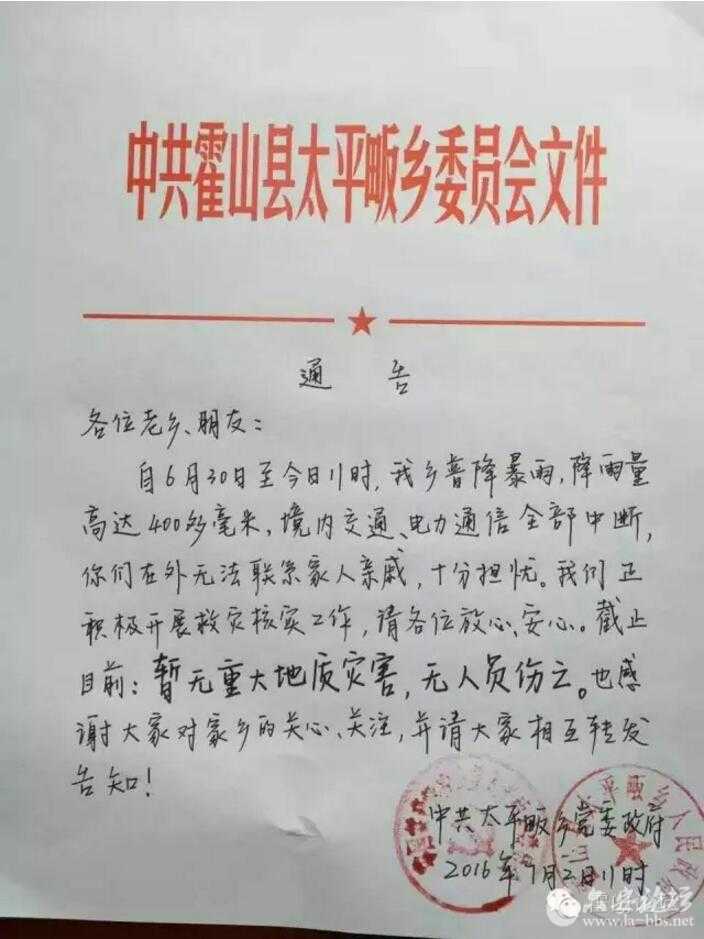 中共霍山县太平畈乡委员会文件
通 告
各位老乡、朋友：
自6月30日至今日11时，我乡普降暴雨，降雨量
高达400多毫米，境内交通、电力通信全部中断，
你们在外无法联系家人亲戚，十分担忧。我们正
积极开展救灾核实工作，请各位放心、安心。截止
目前：暂无重大地质灾害，无人员伤亡。也感
谢大家对家乡的关心、关注，并请大家相互转发
告知！
中共太平畈乡党委政府
2016年7月2日11时
太平畈乡人民政府
六安论坛
www.la-bbs.net